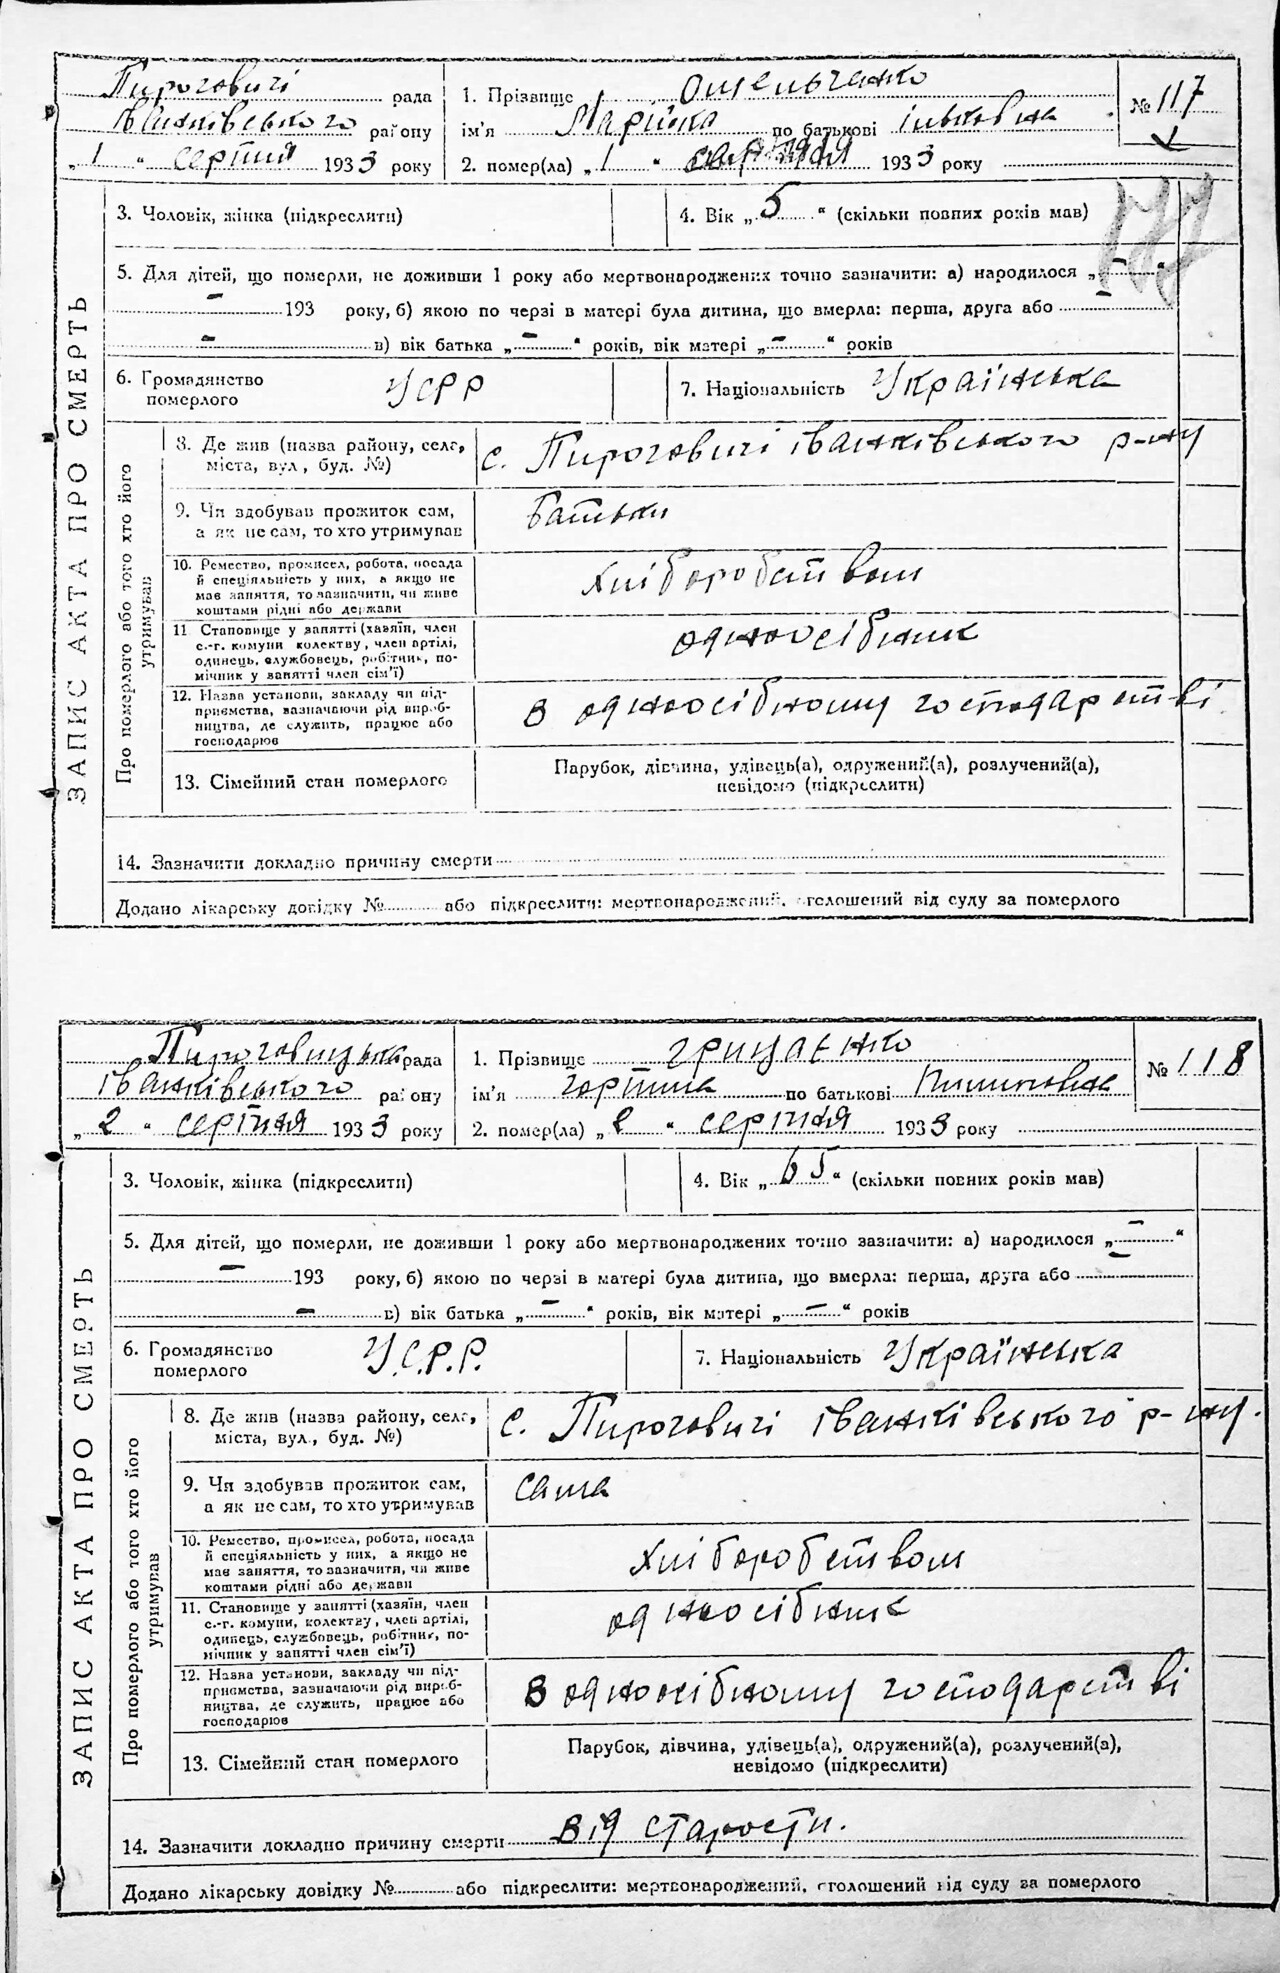 Пироговичі рада
Іванківського району
„ 1 “ серпня 1933 року
1. Прізвище Омельченко
ім'я Марійка по батькові Ільковна
2. помер(ла) „ 1 “ серпня 1933 року
№ 117
117
ЗАПИС АКТА ПРО СМЕРТЬ
3. Чоловік, жінка (підкреслити)
4. Вік „ 5 “ (скільки повних років мав)
5. Для дітей, що померли, не доживши 1 року або мертвонароджених точно зазначити: а) народилося „ — “
— 193 року, б) якою по черзі в матері була дитина, що вмерла: перша, друга або —
— в) вік батька „ — “ років, вік матері „ — “ років
6. Громадянство померлого УСРР
7. Національність Українська
Про померлого або того хто його утримував
8. Де жив (назва району, села,
міста, вул., буд. №)
с. Пироговичі Іванківського р-ну
9. Чи здобував прожиток сам,
а як не сам, то хто утримував
батьки
10. Ремество, промисел, робота, посада
й спеціяльність у них, а якщо не
має заняття, то зазначити, чи живе
коштами рідні або держави
хліборобством
11 Становище у занятті (хазяїн, член
с.-г. комуни колектву, член артілі,
одинець, службовець, робітник, по-
мічник у занятті член сім'ї)
одноосібник
12. Назва установи, закладу чи під-
приємства, зазначаючи рід вироб-
ництва, де служить, працює або
господарює
в одноосібному господарстві
13. Сімейний стан померлого
Парубок, дівчина, удівець(а), одружений(а), розлучений(а),
невідомо (підкреслити)
14. Зазначити докладно причину смерти
Додано лікарську довідку № або підкреслити: мертвонароджений, оголошений від суду за померлого
Пироговицька рада
Іванківського району
„ 2 “ серпня 1933 року
1. Прізвище Гриценко
ім'я Горпина по батькові Пилиповна
2. помер(ла) „ 2 “ серпня 1933 року
№ 118
ЗАПИС АКТА ПРО СМЕРТЬ
3. Чоловік, жінка (підкреслити)
4. Вік „ 65 “ (скільки повних років мав)
5. Для дітей, що померли, не доживши 1 року або мертвонароджених точно зазначити: а) народилося „ — “
— 193 року, б) якою по черзі в матері була дитина, що вмерла: перша, друга або
— в) вік батька „ — “ років, вік матері „ — “ років
6. Громадянство померлого У.С.Р.Р.
7. Національність Українська
Про померлого або того хто його утримував
8. Де жив (назва району, села,
міста, вул., буд. №)
с. Пироговичі Іванківського р-ну.
9. Чи здобував прожиток сам,
а як не сам, то хто утримував
сама
10. Ремество, промисел, робота, посада
й спеціяльність у них, а якщо не
має заняття, то зазначити, чи живе
коштами рідні або держави
хліборобством
11. Становище у занятті (хазяїн, член
с.-г. комуни, колектву, член артілі,
одинець, службовець, робітник, по-
мічник у занятті член сім'ї)
одноосібник
12. Назва установи, закладу чи під-
приємства, зазначаючи рід вироб-
ництва, де служить, працює або
господарює
в одноосібному господарстві
13. Сімейний стан померлого
Парубок, дівчина, удівець(а), одружений(а), розлучений(а),
невідомо (підкреслити)
14. Зазначити докладно причину смерти від старости.
Додано лікарську довідку № або підкреслити: мертвонароджений, оголошений від суду за померлого